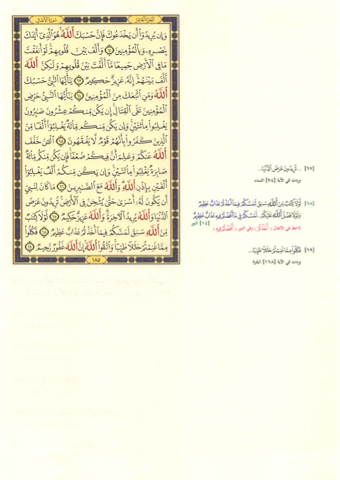 سورة الأنفال
الجزء العاشر
وَإِن يُرِيدُوٓا۟ أَن يَخْدَعُوكَ فَإِنَّ حَسْبَكَ ٱللَّهُ هُوَ ٱلَّذِىٓ أَيَّدَكَ
بِنَصْرِهِۦ وَبِٱلْمُؤْمِنِينَ ٦٢ وَأَلَّفَ بَيْنَ قُلُوبِهِمْ لَوْ أَنفَقْتَ
مَا فِى ٱلْأَرْضِ جَمِيعًا مَّآ أَلَّفْتَ بَيْنَ قُلُوبِهِمْ وَلَٰكِنَّ ٱللَّهَ
أَلَّفَ بَيْنَهُمْ إِنَّهُۥ عَزِيزٌ حَكِيمٌ ٦٣ يَٰٓأَيُّهَا ٱلنَّبِىُّ حَسْبُكَ
ٱللَّهُ وَمَنِ ٱتَّبَعَكَ مِنَ ٱلْمُؤْمِنِينَ ٦٤ يَٰٓأَيُّهَا ٱلنَّبِىُّ حَرِّضِ
ٱلْمُؤْمِنِينَ عَلَى ٱلْقِتَالِ إِن يَكُن مِّنكُمْ عِشْرُونَ صَٰبِرُونَ
يَغْلِبُوا۟ مِا۟ئَتَيْنِ وَإِن يَكُن مِّنكُم مِّا۟ئَةٌ يَغْلِبُوٓا۟ أَلْفًا مِّنَ
ٱلَّذِينَ كَفَرُوا۟ بِأَنَّهُمْ قَوْمٌ لَّا يَفْقَهُونَ ٦٥ ٱلْـَٰٔنَ خَفَّفَ
ٱللَّهُ عَنكُمْ وَعَلِمَ أَنَّ فِيكُمْ ضَعْفًا فَإِن يَكُن مِّنكُم مِّا۟ئَةٌ
صَابِرَةٌ يَغْلِبُوا۟ مِا۟ئَتَيْنِ وَإِن يَكُن مِّنكُمْ أَلْفٌ يَغْلِبُوٓا۟
أَلْفَيْنِ بِإِذْنِ ٱللَّهِ وَٱللَّهُ مَعَ ٱلصَّٰبِرِينَ ٦٦ مَا كَانَ لِنَبِىٍّ
أَن يَكُونَ لَهُۥٓ أَسْرَىٰ حَتَّىٰ يُثْخِنَ فِى ٱلْأَرْضِ تُرِيدُونَ عَرَضَ
ٱلدُّنْيَا وَٱللَّهُ يُرِيدُ ٱلْـَٔاخِرَةَ وَٱللَّهُ عَزِيزٌ حَكِيمٌ ٦٧ لَّوْلَا كِتَٰبٌ
مِّنَ ٱللَّهِ سَبَقَ لَمَسَّكُمْ فِيمَآ أَخَذْتُمْ عَذَابٌ عَظِيمٌ ٦٨ فَكُلُوا۟
مِمَّا غَنِمْتُمْ حَلَٰلًا طَيِّبًا وَٱتَّقُوا۟ ٱللَّهَ إِنَّ ٱللَّهَ غَفُورٌ رَّحِيمٌ ٦٩
١٨٥
[٦٧] ... تُرِيدُونَ عَرَضَ ٱلدُّنْيَا...
وردت في الآية [٩٤] النساء
[٦٨] لَّوْلَا كِتَٰبٌ مِّنَ ٱللَّهِ سَبَقَ لَمَسَّكُمْ فِيمَآ أَخَذْتُمْ عَذَابٌ عَظِيمٌ
[٦٩] فَكُلُوا۟ مِمَّا غَنِمْتُمْ حَلَٰلًا طَيِّبًا...